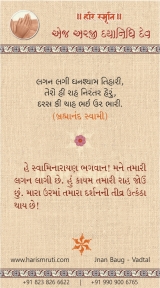 ॥ હરિ સ્મૃતિ ॥
એજ અરજી દયાનિધિ દેવ
લગન લગી ઘનશ્યામ તિહારી,
તેરો હી રાહ નિરંતર હેરું,
દરસ કી ચાહ ભઈ ઉર ભારી.
(બ્રહ્માનંદ સ્વામી)
હે સ્વામિનારાયણ ભગવાન! મને તમારી
લગન લાગી છે. હું કાયમ તમારી રાહ જોઉં
છું. મારા ઉરમાં તમારા દર્શનની તીવ્ર ઉત્કંઠા
થાય છે!
www.harismruti.com Jnan Baug - Vadtal
+91 823 826 6622 +91 990 900 6765